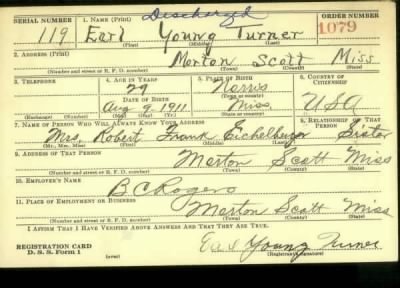 Discharged
SERIAL NUMBER 1. NAME (Print) ORDER NUMBER
119 Earl Young Turner 1079
(First) (Middle) (Last)
2. ADDRESS (Print)
Morton Scott Miss
(Number and street or R. F. D. number) (Town) (County) (State)
3. TELEPHONE 4. AGE IN YEARS 5. PLACE OF BIRTH 6. COUNTRY OF CITIZENSHIP
29 Norris
(Town or county)
DATE OF BIRTH
Aug 9 1911 Miss. USA
(Exchange) (Number) (Mo.) (Day) (Yr.) (State or country)
7. NAME OF PERSON WHO WILL ALWAYS KNOW YOUR ADDRESS 8. RELATIONSHIP OF THAT PERSON
Mrs. Robert Frank Eichelberger Sister
(Mr., Mrs., Miss) (First) (Middle) (Last)
9. ADDRESS OF THAT PERSON
Morton Scott Miss
(Number and street or R. F. D. number) (Town) (County) (State)
10. EMPLOYER'S NAME
B C Rogers
11. PLACE OF EMPLOYMENT OR BUSINESS
Morton Scott Miss
(Number and street or R. F. D. number) (Town) (County) (State)
I AFFIRM THAT I HAVE VERIFIED ABOVE ANSWERS AND THAT THEY ARE TRUE.
REGISTRATION CARD Earl Young Turner
D. S. S. Form 1 (over) (Registrant's signature)